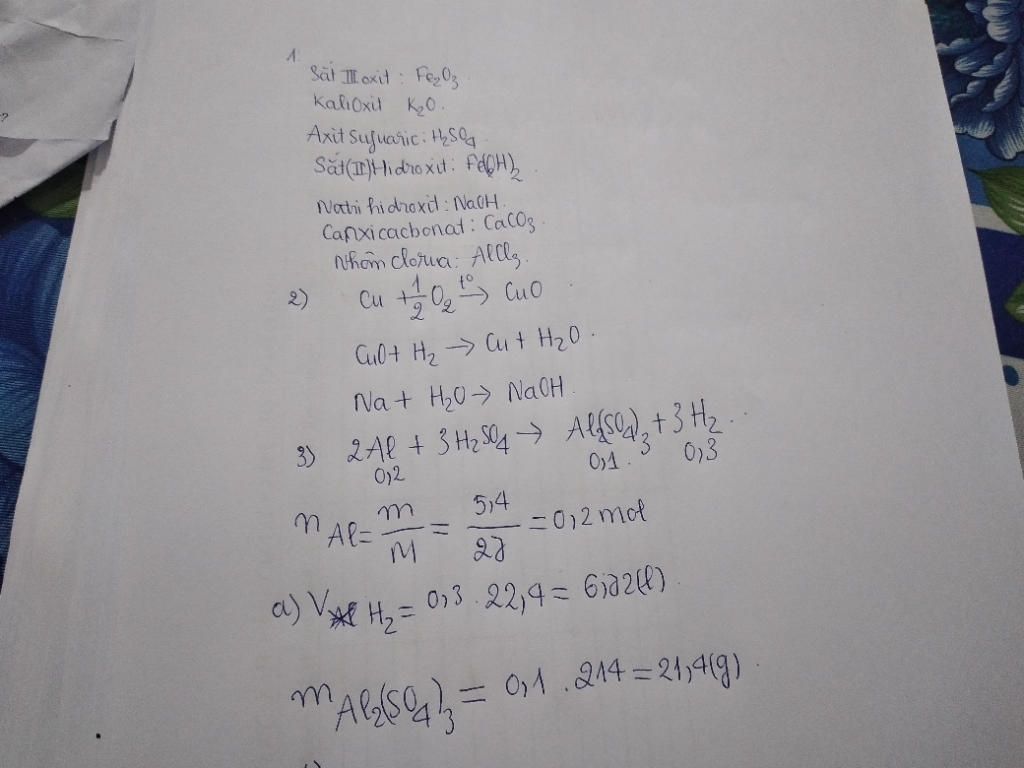 1.
Sắt III oxit : Fe2O3.
Kali Oxit K2O.
Axit Sufuaric : H2SO4.
Sắt (II) Hidroxit : Fe(OH)2.
Natri hidroxit : NaOH.
Canxicacbonat : CaCO3.
Nhôm clorua : AlCl3.
2) Cu + 1/2 O2 t° → CuO
CuO + H2 → Cu + H2O.
Na + H2O → NaOH.
3) 2Al + 3H2SO4 → Al2(SO4)3 + 3H2.
0,2 0,1. 0,3
n Al = m/M = 5,4/27 = 0,2 mol
a) V H2 = 0,3 . 22,4 = 6,72 (l).
m Al2(SO4)3 = 0,1 . 214 = 21,4 (g).